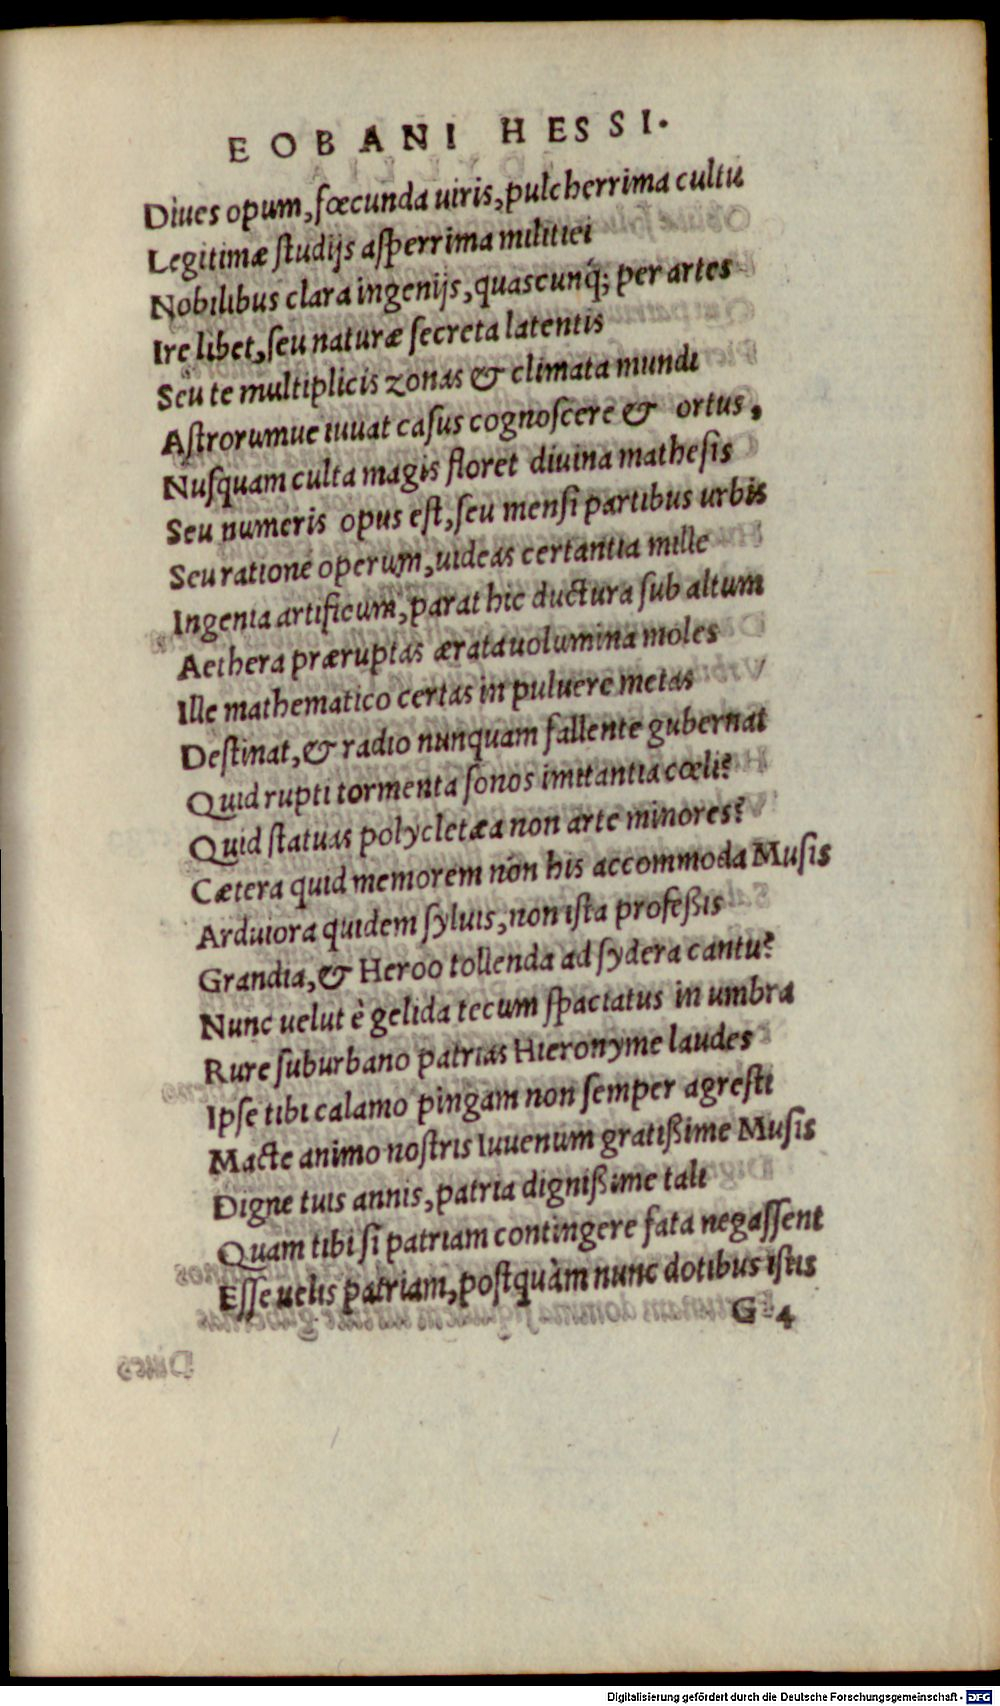 EOBANI HESSI.
Diues opum, fœcunda uiris, pulcherrima cultu
Legitimæ studijs asperrima militiei
Nobilibus clara ingenijs, quascunq; per artes
Ire libet, seu naturæ secreta latentis
Seu te multiplicis zonas & climata mundi
Astrorumue iuuat casus cognoscere & ortus,
Nusquam culta magis floret diuina mathesis
Seu numeris opus est, seu mensi partibus urbis
Seu ratione operum, uideas certantia mille
Ingenia artificum, parat hic ductura sub altum
Aethera præruptas ærata uolumina moles
Ille mathematico certas in puluere metas
Destinat, & radio nunquam fallente gubernat
Quid rupti tormenta sonos imitantia cœli?
Quid statuas polycletæa non arte minores?
Cætera quid memorem non his accommoda Musis
Arduiora quidem syluis, non ista profeßis
Grandia, & Heroo tollenda ad sydera cantu?
Nunc uelut è gelida tecum spaciatus in umbra
Rure suburbano patrias Hieronyme laudes
Ipse tibi calamo pingam non semper agresti
Macte animo nostris Iuuenum gratißime Musis
Digne tuis annis, patria dignißime tali
Quam tibi si patriam contingere fata negassent
Esse uelis patriam, postquàm nunc dotibus istis
G 4
Digitalisierung gefördert durch die Deutsche Forschungsgemeinschaft - DFG